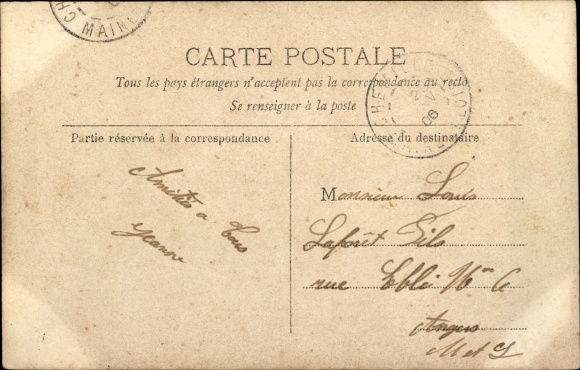 CH MAINE
CARTE POSTALE
Tous les pays étrangers n'acceptent pas la correspondance au recto
Se renseigner à la poste
Partie réservée à la correspondance
Amitiés a tous
Jeanne
Adresse du destinataire
Monsieur Louis
Laforêt Fils
rue Eblé No 6
Angers
M et L